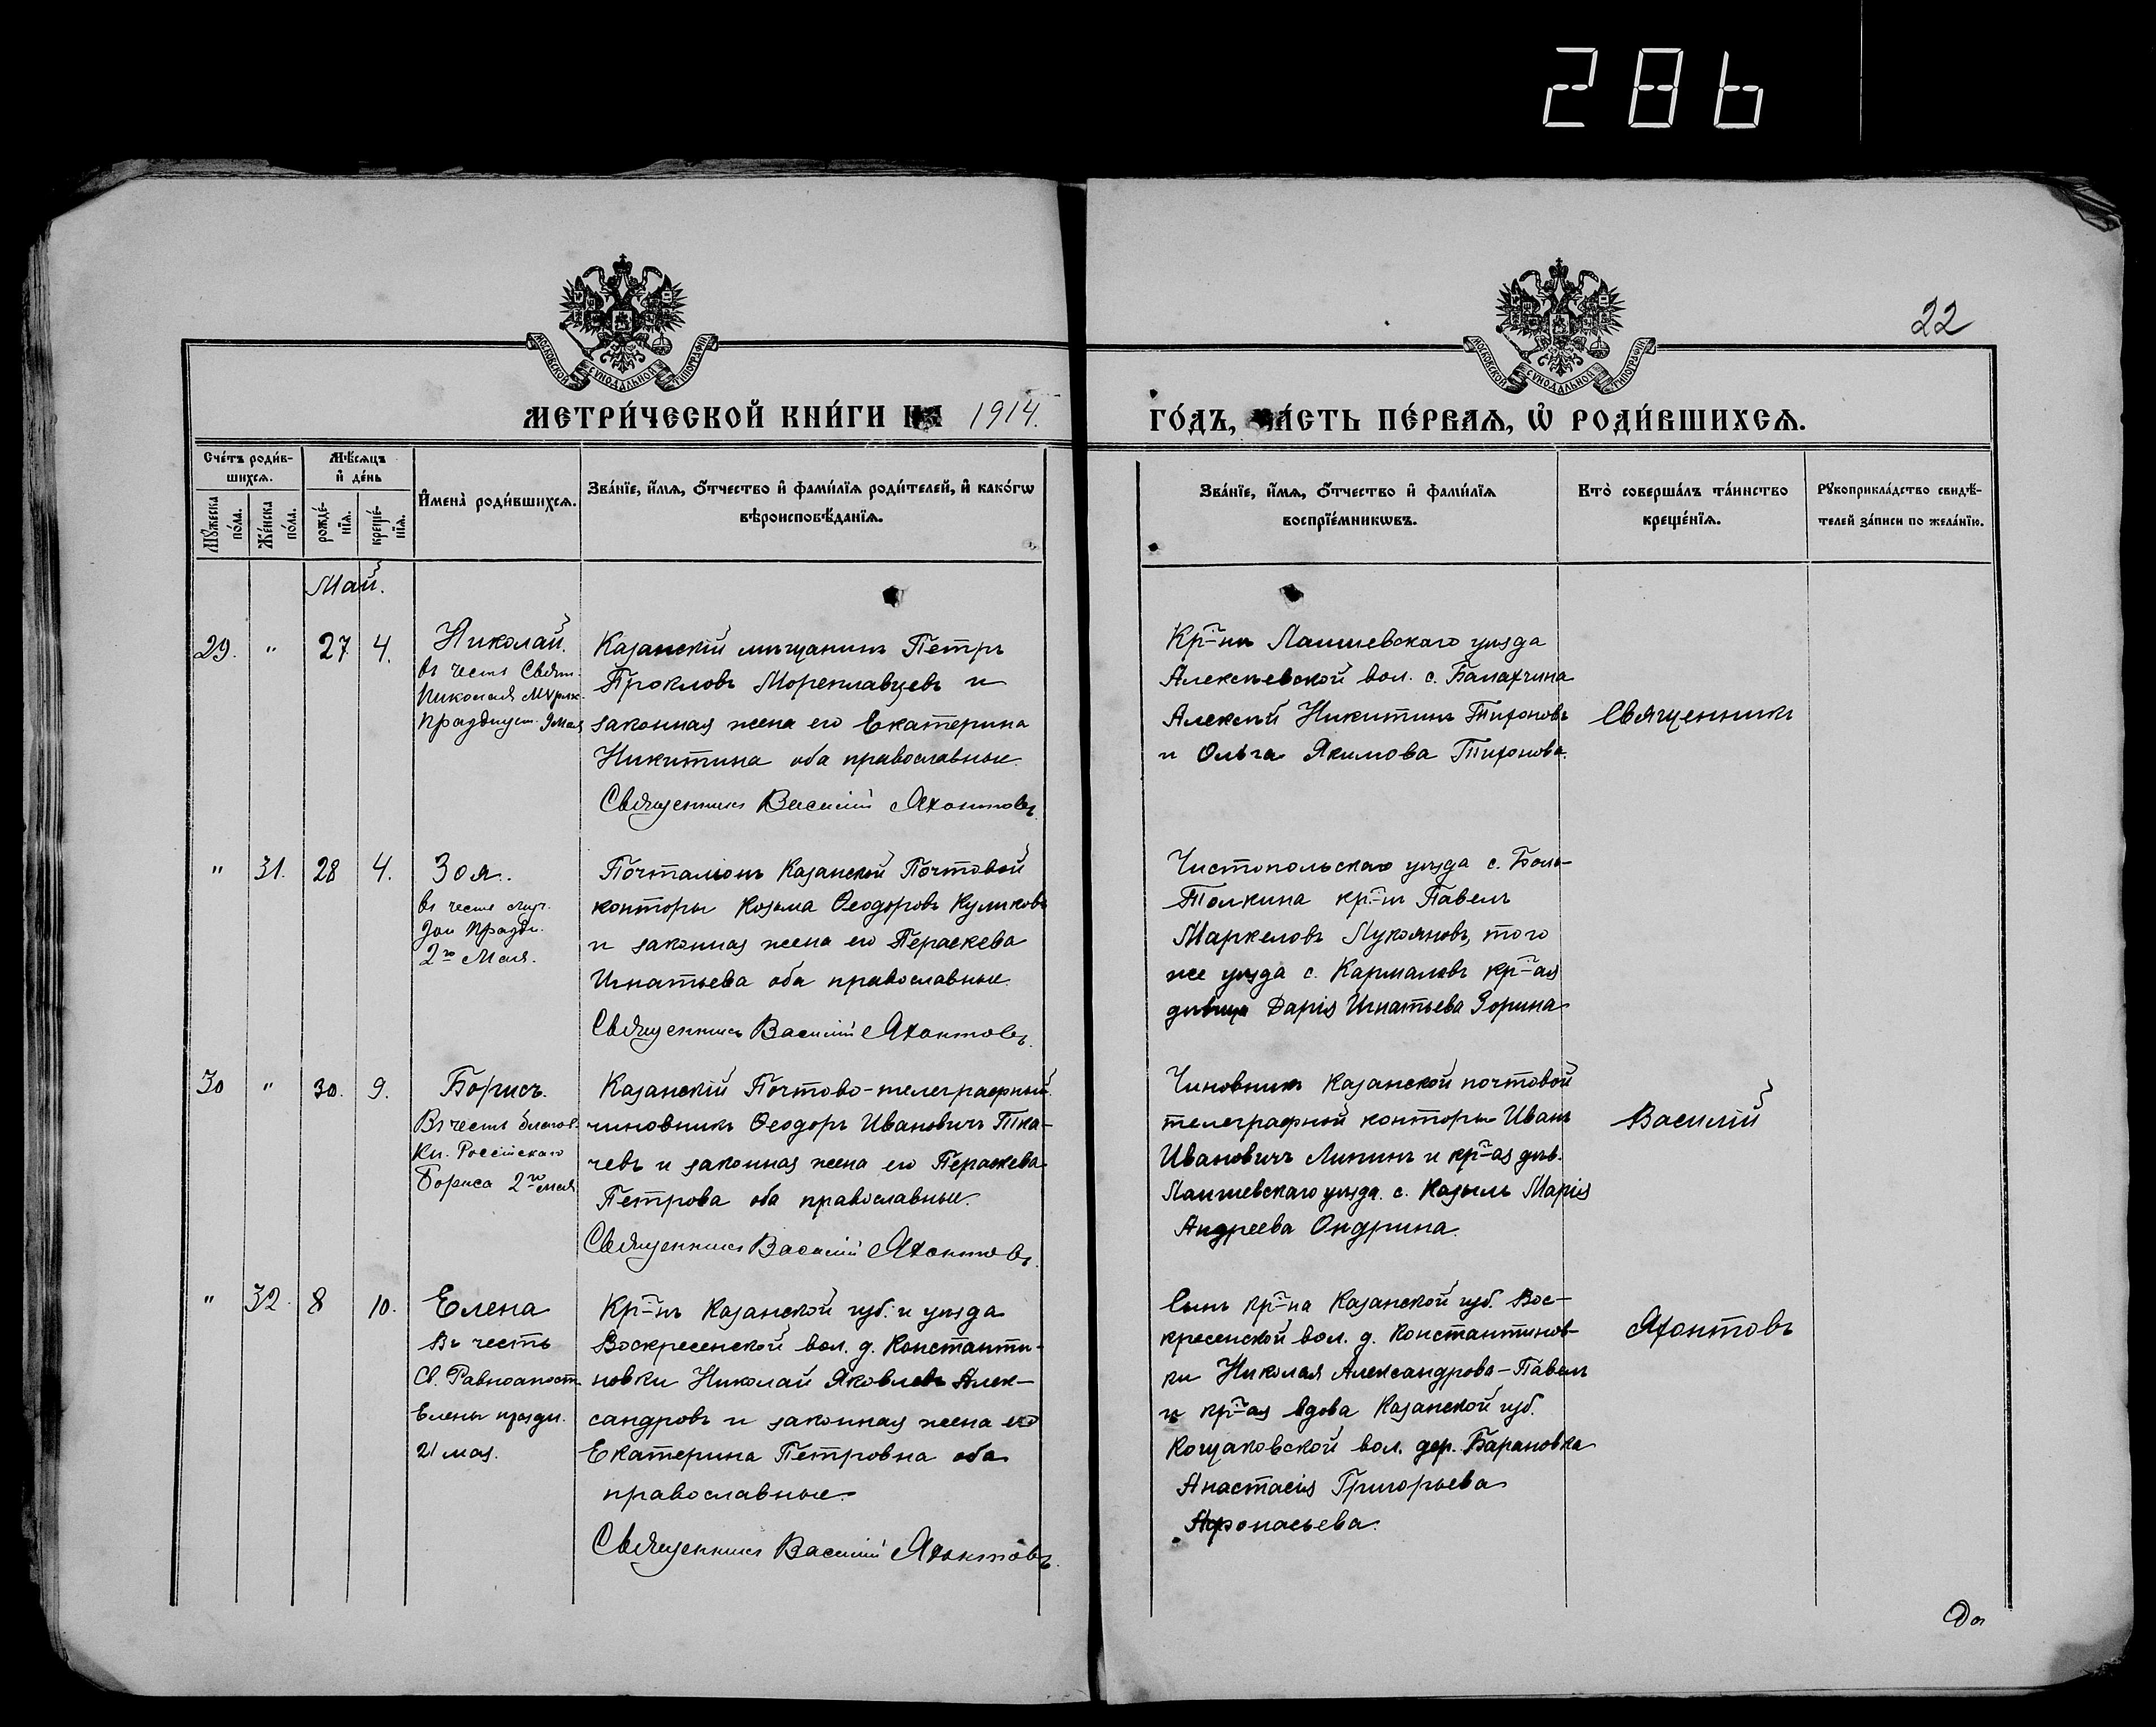 286
22
МОСКОВСКОЙ СѴНОДАЛЬНОЙ ТИПОГРАФІИ
МОСКОВСКОЙ СѴНОДАЛЬНОЙ ТИПОГРАФІИ
МЕТРИ́ЧЕСКОЙ КНИ́ГИ НА 1914.
ГО́ДЪ, ЧА́СТЬ ПЕ́РВАѦ, Ѽ РОДИ́ВШИХСѦ.
Сче́тъ роди́в-
шихсѧ.
Мѣ́сѧцъ
и҆ де́нь
Мꙋ́жеска по́ла.
Же́нска по́ла.
рожде́-
нїѧ.
креще́-
нїѧ.
И҆мена̀ роди́вшихсѧ.
Зва́нїе, и҆́мѧ, ѻ҆́тчество и҆ фами́лїѧ роди́телей, и҆ како́гѡ
вѣроисповѣ́данїѧ.
Зва́нїе, и҆́мѧ, ѻ҆́тчество и҆ фами́лїѧ
воспрїе́мникѡвъ.
Кто̀ соверша́лъ та́инство
креще́нїѧ.
Рꙋкоприкла́дство свидѣ́-
телей за́писи по жела́нїю.
Май.
29. " 27 4.
Николай.
въ честь Свят.
Николая Мѵрлик.
празднуем. 9 мая
Казанскій мѣщанинъ Петръ
Прокловъ Мореплавцевъ и
законная жена его Екатерина
Никитина оба православные.
Священникъ Василій Яхонтовъ.
Кр-нъ Лаишевскаго уѣзда
Алексѣевской вол. с. Балахчина
Алексѣй Никитинъ Тихоновъ
и Ольга Якимова Тихонова.
Священникъ
" 31. 28 4.
Зоя.
въ честь муч.
Зои празд.
2го Мая.
Почталіонъ Казанской Почтовой
конторы Козьма Ѳеодоровъ Куликовъ
и законная жена его Параскева
Игнатьева оба православные.
Священникъ Василій Яхонтовъ.
Чистопольскаго уѣзда с. Боль-
Толкина кр-нъ Павелъ
Маркеловъ Лукояновъ, того
же уѣзда с. Кармаловъ кр-ая
дѣвица Дарія Игнатьева Зорина
30 " 30. 9.
Борисъ.
Въ честь благов.
Кн. Россійскаго
Бориса 2го мая
Казанскій Почтово-телеграфный
чиновникъ Ѳеодоръ Ивановичъ Тка-
чевъ и законная жена его Параскева
Петрова оба православные.
Священникъ Василій Яхонтовъ.
Чиновникъ Казанской почтовой
телеграфной конторы Иванъ
Ивановичъ Липинъ и кр-ая дѣв.
Лаишевскаго уѣзда. с. Казыль Марія
Андреева Ондрина.
Василій
" 32. 8 10.
Елена
Въ честь
Св. Равноапост.
Елены праздн.
21 мая.
Кр-нъ Казанской губ. и уѣзда
Воскресенской вол. д. Константи-
новки Николай Яковлевъ Алек-
сандровъ и законная жена его
Екатерина Петровна оба
православные.
Священникъ Василій Яхонтовъ.
Сынъ кр-на Казанской губ. Вос-
кресенской вол. д. Константинов-
ки Николая Александрова-Павелъ
и кр-ая вдова Казанской губ.
Кощаковской вол. дер. Барановка
Анастасія Григорьева
Афонасьева.
Яхонтовъ